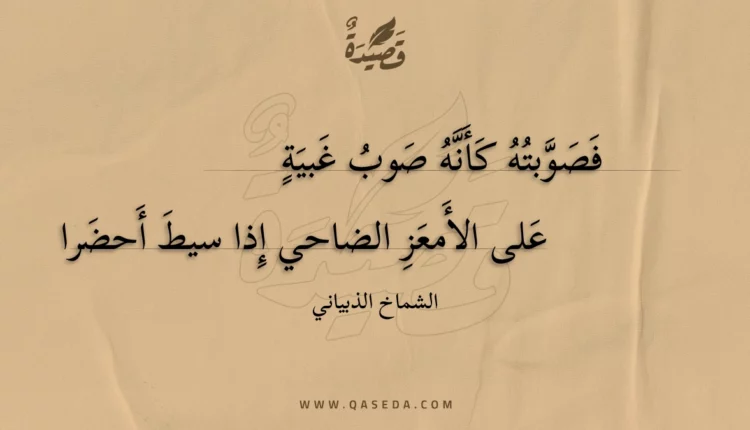 قَصِيدَةٌ
فَصَوَّبتُهُ كَأَنَّهُ صَوبُ غَبيَةٍ
عَلى الأَمعَزِ الضاحي إِذا سيطَ أَحضَرا
الشماخ الذبياني
WWW.QASEDA.COM